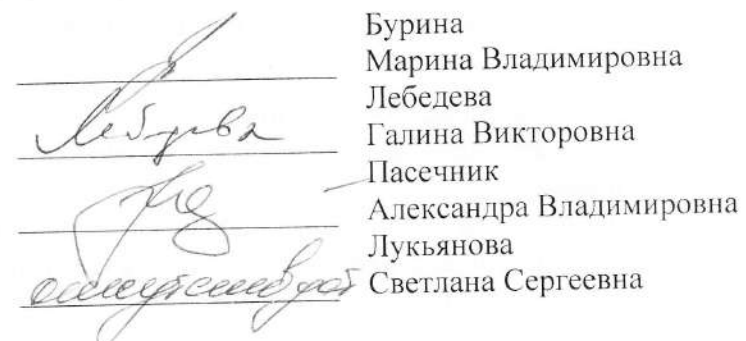 Бурина
Марина Владимировна
Лебедева
Лебедева
Галина Викторовна
Пасечник
Александра Владимировна
Лукьянова
отсутствовал Светлана Сергеевна